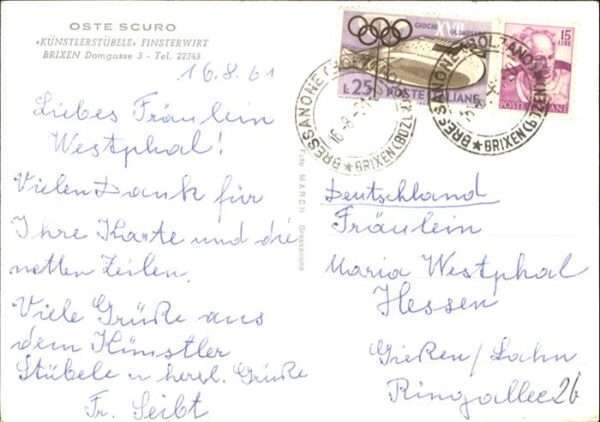 OSTE SCURO
«KÜNSTLERSTÜBELE» FINSTERWIRT
BRIXEN Domgasse 3 - Tel. 22343
16.8.61
Liebes Fräulein
Westphal!
Vielen Dank für
Ihre Karte und die
netten Zeilen.
Viele Grüße aus
dem Künstler
Stübele u herzl. Grüße
Fr. Seibt
Foto MARCH Bressanone
GIOCHI XVII
L.25 POSTE ITALIANE
15
LIRE
POSTE ITALIANE
BRESSANONE (BOLZANO)
BRIXEN (BOZEN)
16-8-
BRESSANONE (BOLZANO)
BRIXEN (BOZEN)
Deutschland
Fräulein
Maria Westphal
Hessen
Gießen/Lahn
Ringallee 26